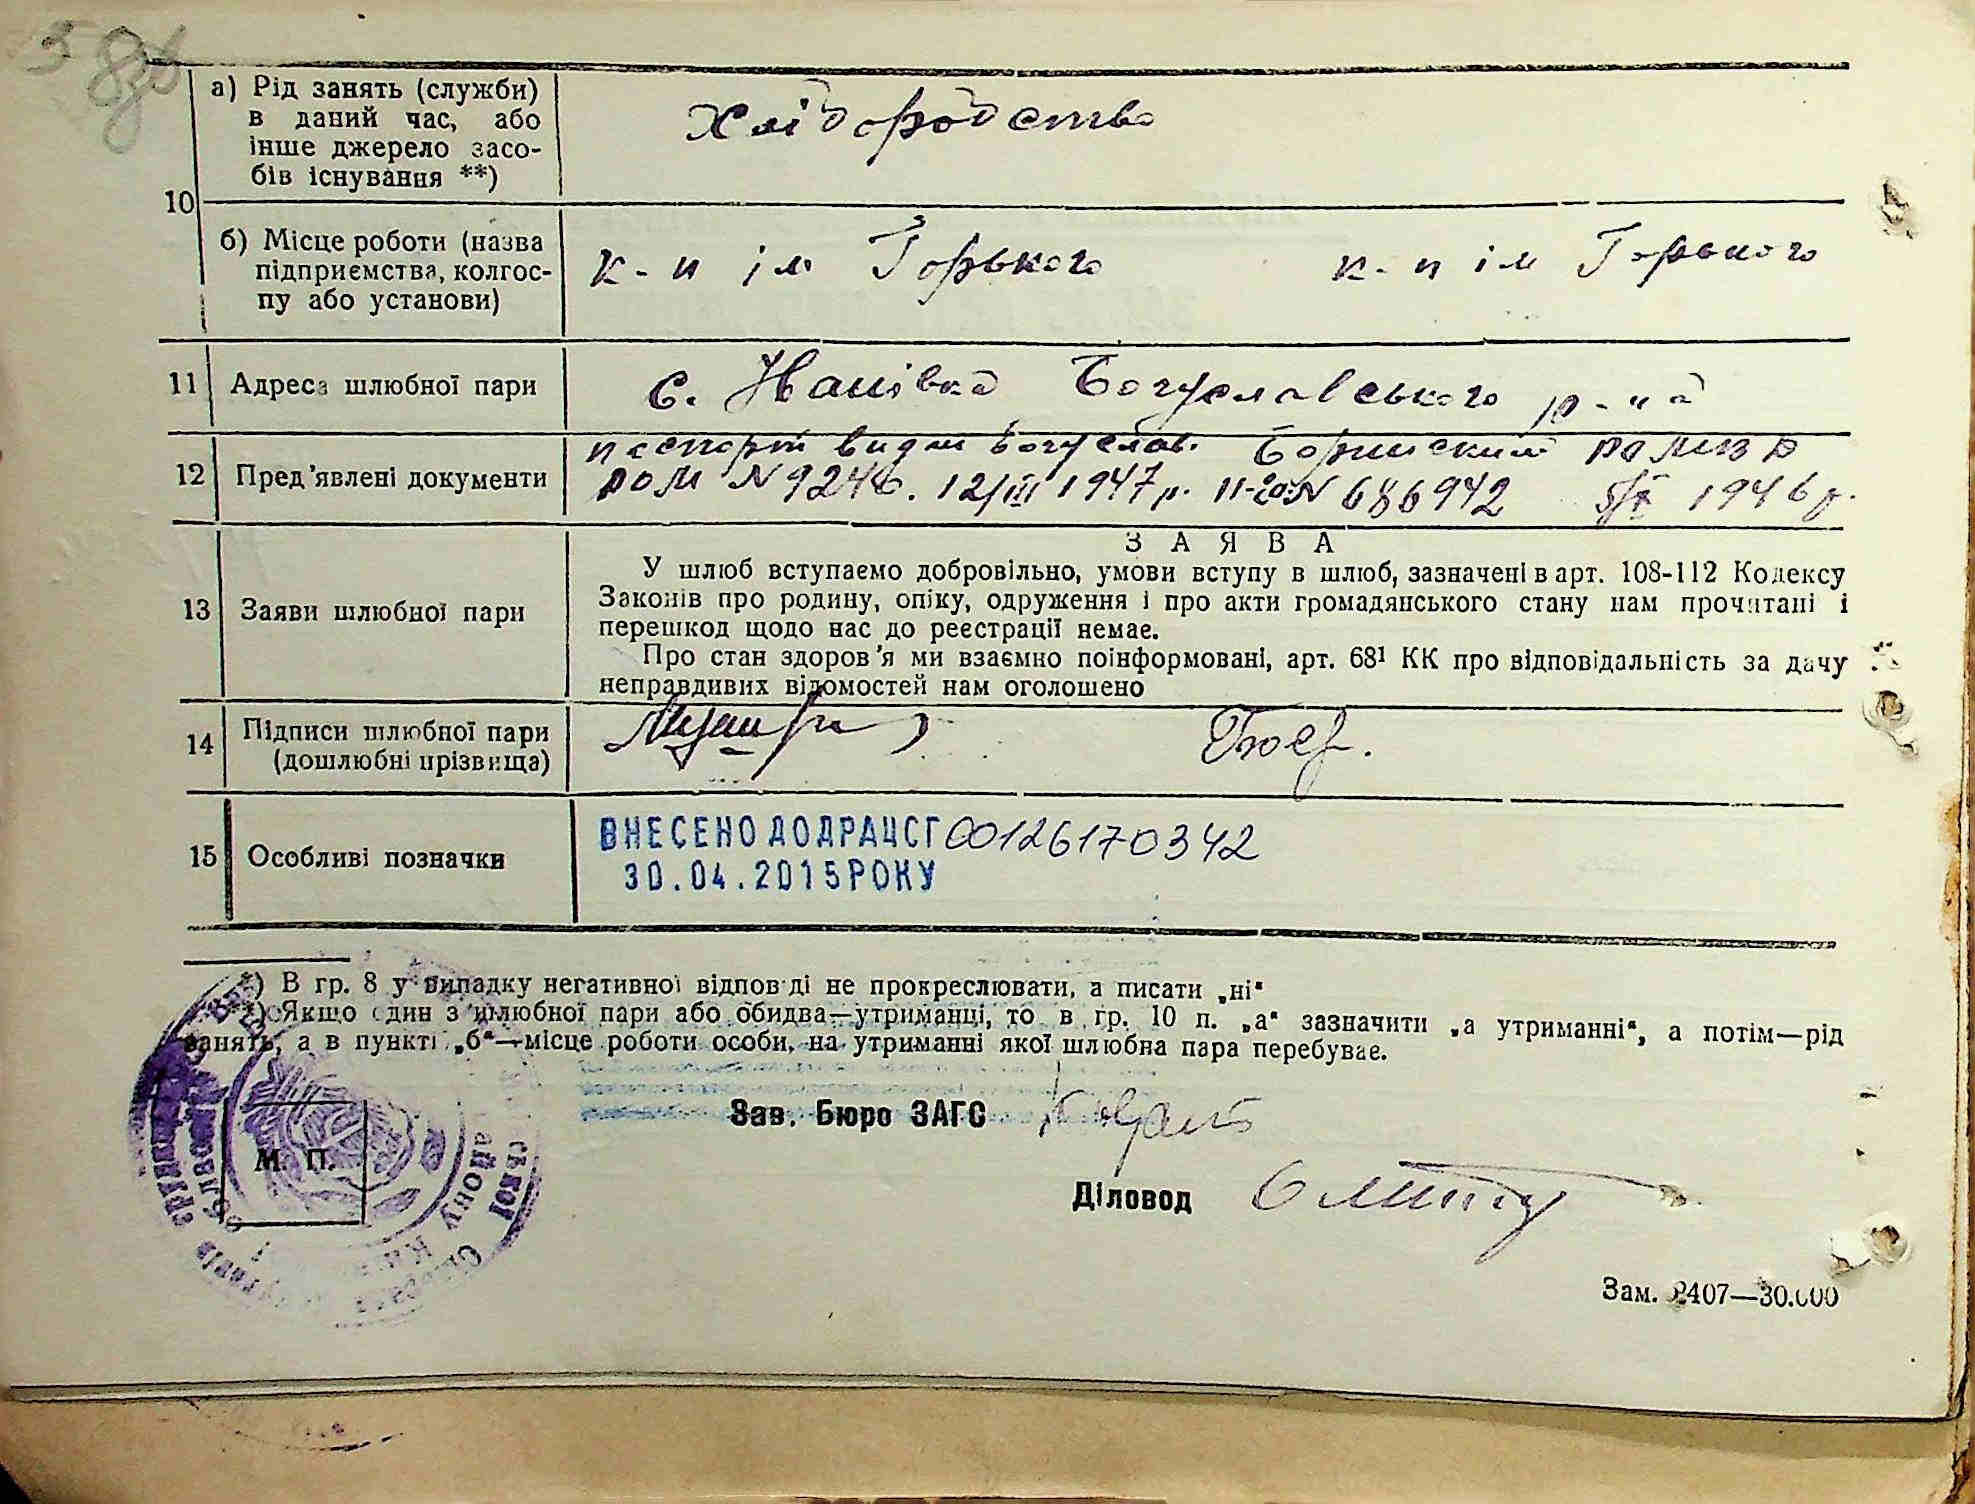 а) Рід занять (служби)
в даний час, або
інше джерело засо-
бів існування **)
Хліборобство
10
б) Місце роботи (назва
підприємства, колгос-
пу або установи)
к-п ім Горького к-п ім Горького
11 Адреса шлюбної пари
с. Іванівка Богуславського р-н
12 Пред'явлені документи
паспорт видан Богуслав.
РОМ N 9246. 12/III 1947 р. N 686942 1946 р.
З А Я В А
У шлюб вступаємо добровільно, умови вступу в шлюб, зазначені в арт. 108-112 Кодексу
13 Заяви шлюбної пари
Законів про родину, опіку, одруження і про акти громадянського стану нам прочитані і
перешкод щодо нас до реєстрації немає.
Про стан здоров'я ми взаємно поінформовані, арт. 68¹ КК про відповідальність за дачу
неправдивих відомостей нам оголошено
14 Підписи шлюбної пари
(дошлюбні прізвища)
15 Особливі позначки
ВНЕСЕНО ДО ДРАЦСГ 00126170342
30.04.2015 РОКУ
*) В гр. 8 у випадку негативної відповіді не прокреслювати, а писати „ні“
**) Якщо один з шлюбної пари або обидва—утриманці, то в гр. 10 п. „а“ зазначити „а утриманні“, а потім—рід
занять, а в пункті „б“—місце роботи особи, на утриманні якої шлюбна пара перебуває.
Зав. Бюро ЗАГС
М. П.
Діловод
Зам. 2407—30.000